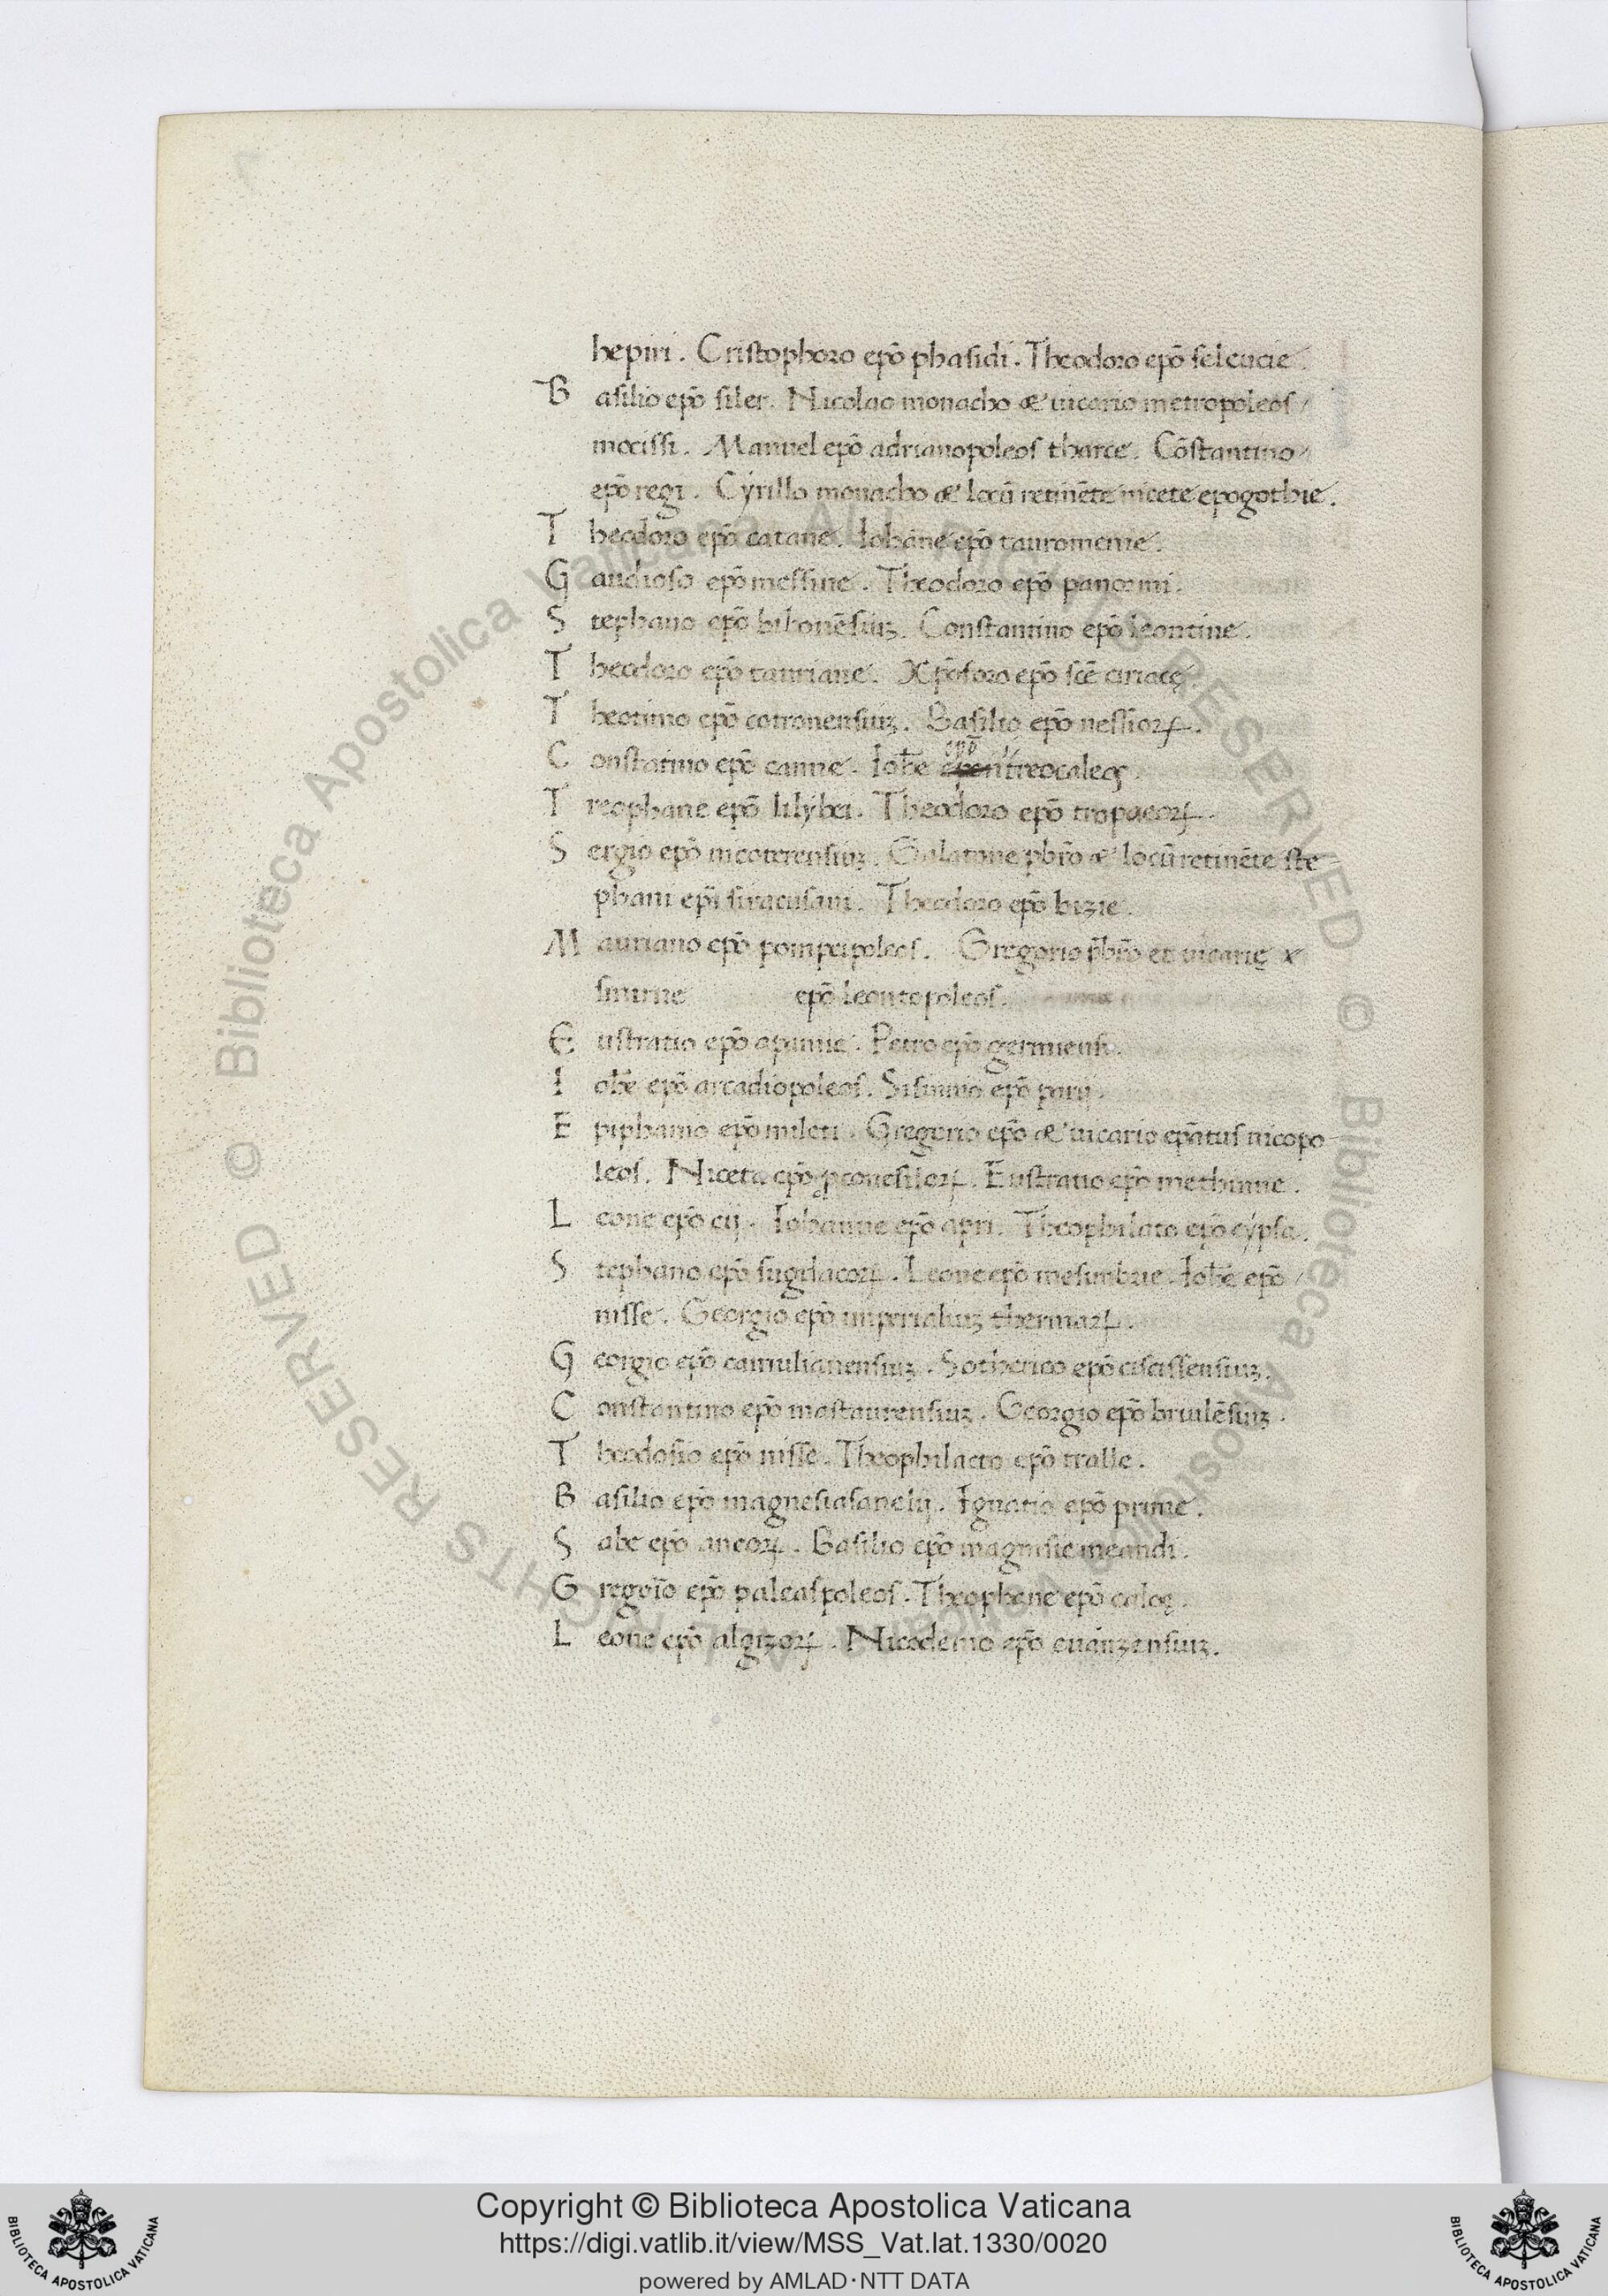 hepiri. Cristophoro ep̄o phasidi. Theodoro ep̄o seleucie
Basilio ep̄o siler. Nicolao monacho & uicario metropoleos
mocissi. Manuel ep̄o adrianopoleos tharce. Cōstantino
ep̄o regi. Cyrillo monacho & locū retinēte nicete epo gothie.
Theodoro ep̄o catane. Iohāne ep̄o tauromenie.
Gaudioso ep̄o messine. Theodoro ep̄o panormi.
Stephano ep̄o bibonēsiuꝫ. Constantino ep̄o leontine.
Theodoro ep̄o tauriane. Xp̄oforo ep̄o sc̄e ciriacę.
Theotimo ep̄o cotronensiuꝫ. Basilio ep̄o nessioꝝ.
Constatino ep̄o canne. Ioħe ep̄o treocaleos.
Treophane ep̄o lilybei. Theodoro ep̄o tropaeoꝝ.
Sergio ep̄o nicoterensiuꝫ. Galatone pbr̄o & locū retinēte ste
phani ep̄i siracusani. Theodoro ep̄o bizie.
Mauriano ep̄o pompeipoleos. Gregorio p̄br̄o et uicarię x
smirne ep̄o leontopoleos.
Eustratio ep̄o apamie. Petro ep̄o germiensi.
Ioħe ep̄o arcadiopoleos. Sisinnio ep̄o parij.
Epiphanio ep̄o mileti. Gregorio ep̄o & uicario ep̄atus nicopo
leos. Niceta ep̄o ꝓconesiloꝝ. Eustratio ep̄o methimne.
Leone ep̄o cij. Iohanne ep̄o apri. Theophilato ep̄o cypsa.
Stephano ep̄o sugdaeoꝝ. Leone ep̄o mesimbrie. Ioħe ep̄o
nisse. Georgio ep̄o imperialiuꝫ thermaꝝ.
Georgio ep̄o camulianensiuꝫ. Sotherico ep̄o ciscissensiuꝫ.
Constantino ep̄o mastaurensiuꝫ. Georgio ep̄o briulēsiuꝫ.
Theodosio ep̄o nisse. Theophilacto ep̄o tralle.
Basilio ep̄o magnesiasanelij. Ignatio ep̄o prime.
Sabe ep̄o aneoꝝ. Basilio ep̄o magnisie meandi.
Gregoīo ep̄o paleaspoleos. Theophane ep̄o caloę.
Leone ep̄o algizoꝝ. Nicodemo ep̄o euanzensiuꝫ.
Copyright © Biblioteca Apostolica Vaticana
https://digi.vatlib.it/view/MSS_Vat.lat.1330/0020
powered by AMLAD·NTT DATA